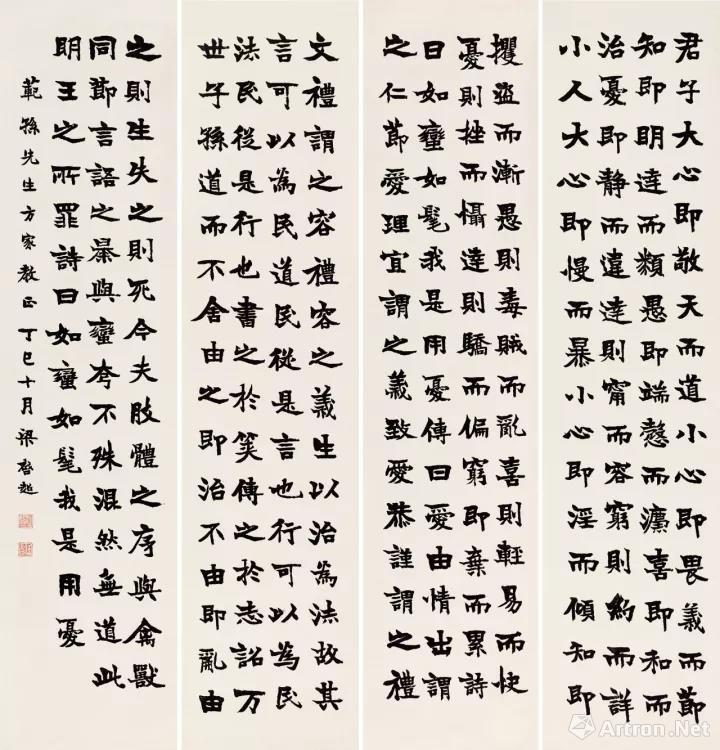 君子大心即敬天而道小心即畏義而節
知即明達而類愚即端愨而灋喜即和而
治憂即静而違達則甯而容窮則約而詳
小人大心即慢而暴小心即淫而傾知即
攫盜而漸愚則毒賊而亂喜則輕易而快
憂則挫而懾達則驕而偏窮即棄而累詩
曰如蠻如髦我是用憂傳曰愛由情出謂
之仁節愛理宜謂之義致愛恭謹謂之禮
文禮謂之容禮容之義生以治為法故其
言可以為民道民從是言也行可以為民
法民從是行也書之於筴傳之於志詔万
世子孫道而不舍由之即治不由即亂由
之則生失之則死今夫肢體之序與禽獸
同節言語之暴與蠻夸不殊混然無道此
明王之所罪詩曰如蠻如髦我是用憂
範孫先生方家教正丁巳十月梁啓超
Artron.Net